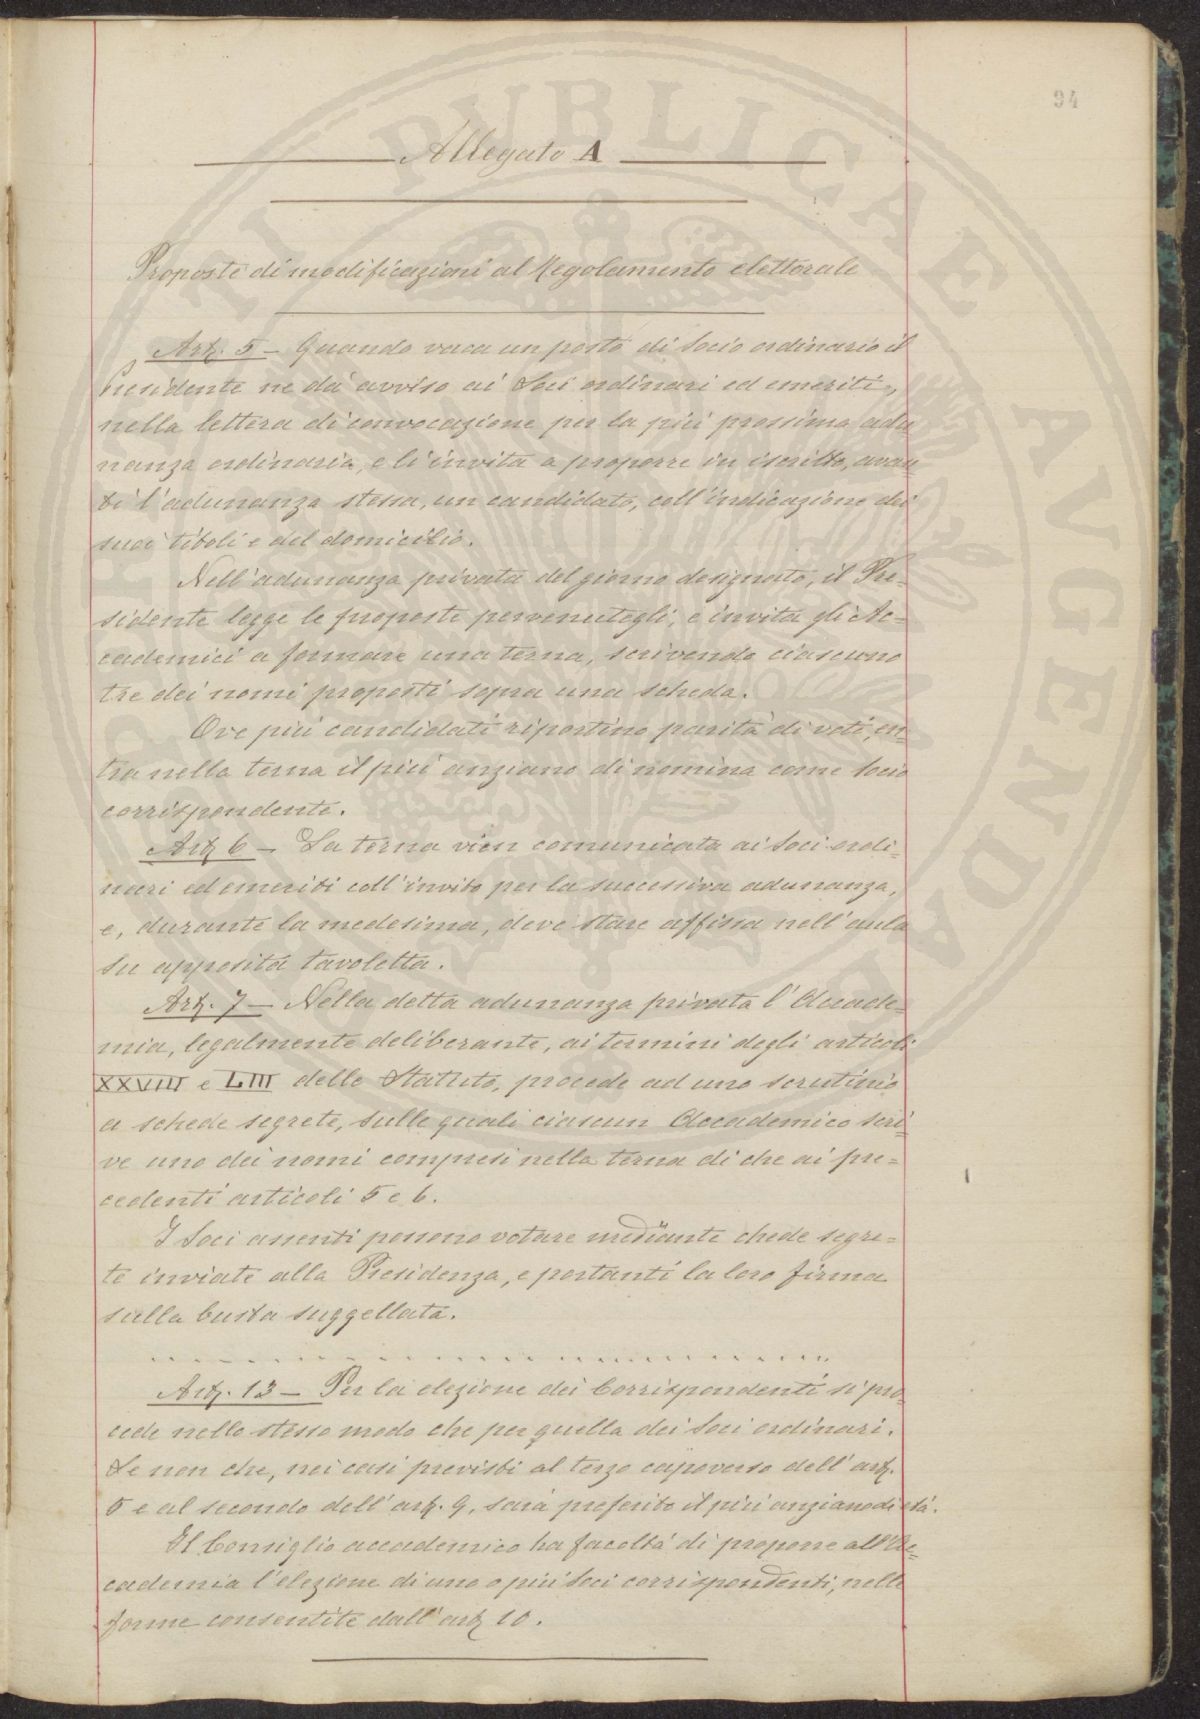 94
Allegato A
Proposte di modificazioni al Regolamento elettorale
Art. 5 — Quando vaca un posto di Socio ordinario il
Presidente ne dà avviso ai Soci ordinari ed emeriti,
nella lettera di convocazione per la più prossima adu
nanza ordinaria, e li invita a proporre in iscritto, avan=
ti l'adunanza stessa, un candidato, coll'indicazione dei
suoi titoli e del domicilio.
Nell'adunanza privata del giorno designato, il Pre=
sidente legge le proposte pervenutegli, e invita gli Ac=
cademici a formare una terna, scrivendo ciascuno
tre dei nomi proposti sopra una scheda.
Ove più candidati riportino parità di voti, en=
tra nella terna il più anziano di nomina come Socio
corrispondente.
Art. 6 — La terna vien comunicata ai Soci ordi=
nari ed emeriti coll'invito per la successiva adunanza,
e, durante la medesima, deve stare affissa nell'aula
su apposita tavoletta.
Art. 7 — Nella detta adunanza privata l'Accade=
mia, legalmente deliberante, ai termini degli articoli
XXVIII e LIII dello Statuto, procede ad uno scrutinio
a schede segrete, sulle quali ciascun Accademico scri=
ve uno dei nomi compresi nella terna di che ai pre=
cedenti articoli 5 e 6.
I Soci assenti possono votare mediante chede segre=
te inviate alla Presidenza, e portanti la loro firma
sulla busta suggellata.
Art. 13 — Per la elezione dei Corrispondenti si pro=
cede nello stesso modo che per quella dei Soci ordinari.
Se non che, nei casi previsti al terzo capoverso dell'art.
5 e al secondo dell'art. 9, sarà preferito il più anziano di età.
Il Consiglio accademico ha facoltà di proporre all'Ac=
cademia l'elezione di uno o più Soci corrispondenti, nelle
forme consentite dall'art. 10.
REI PUBLICAE AVGENDAE